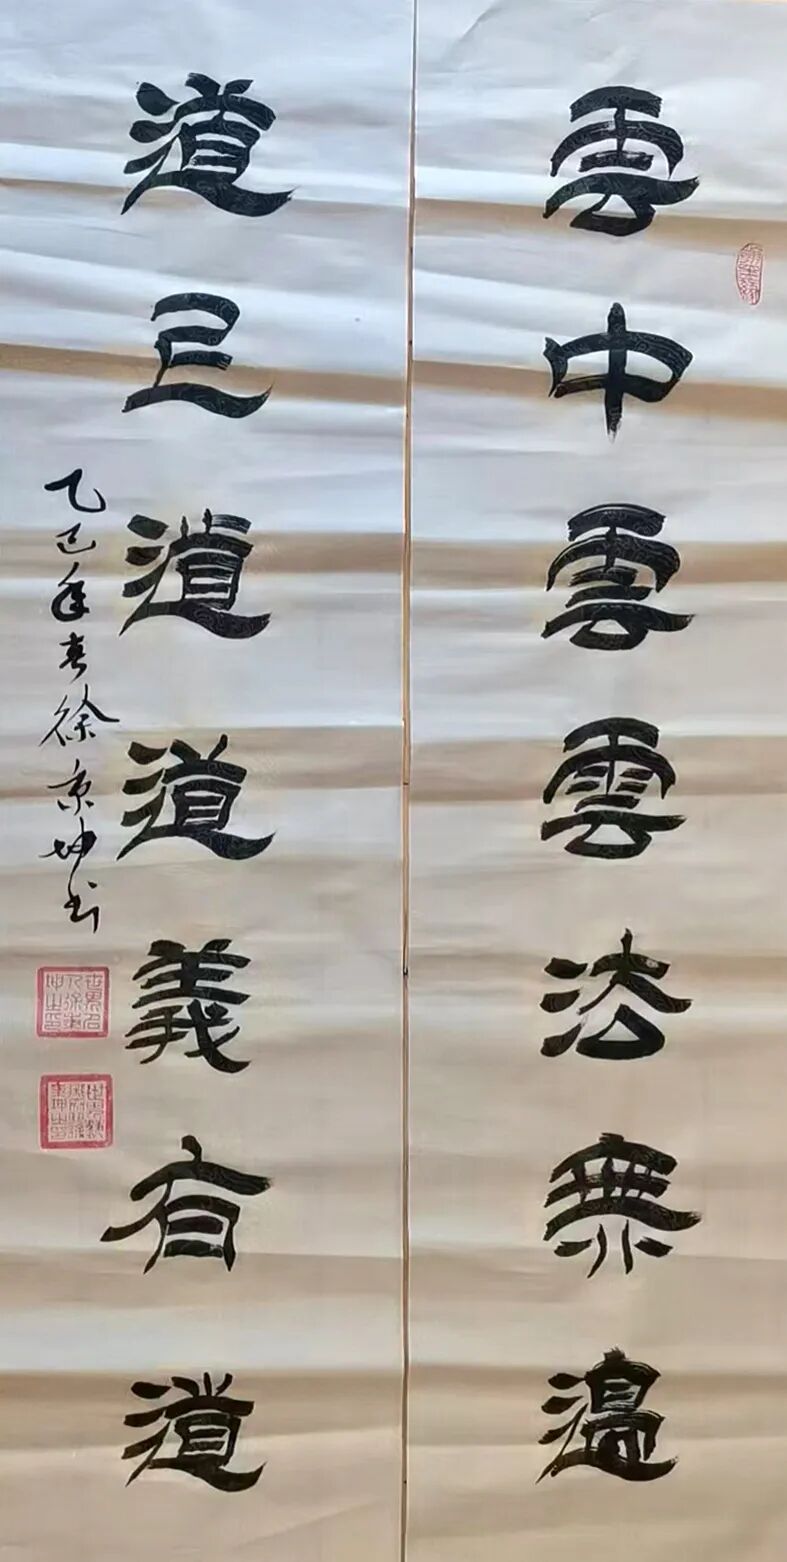 雲中雲雲法無邊
道己道道義有道
乙巳年春徐京坤书